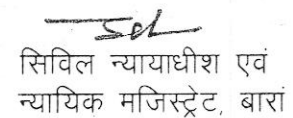 सिविल न्यायाधीश एवं
न्यायिक मजिस्ट्रेट, बारां